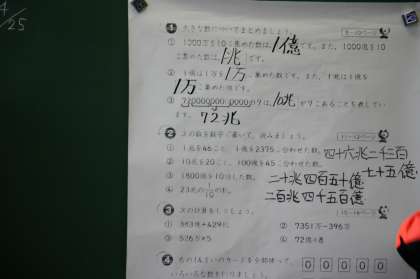 4/25
1 大きな数についてまとめましょう。 8~10ページ
① 1000万を10こ集めた数は、1億です。また、1000億を10
こ集めた数は、1兆です。
② 1億は1万を1万こ集めた数です。また、1兆は1億を
1万こ集めた数です。
は、10兆が7こあることを表してい
ます。72兆
2 次の数を数字で書いて、読みましょう。 11~12ページ
① 1兆を46こと、1億を2375こ合わせた数。四十六兆二千三百
七十五億
② 10兆を20こと、100億を45こ合わせた数。
③ 1800億を10倍した数。二十兆四百五十億
④ 23兆の1/10の数。二百兆四千五百億
3 次の計算をしましょう。 13~14ページ
① 583億+429億 ② 7351万-396万
③ 526万×5 ④ 72億÷8
4 右の14まいのカードを全部使って、
いろいろな数を作りましょう。
0 0 0 0 0